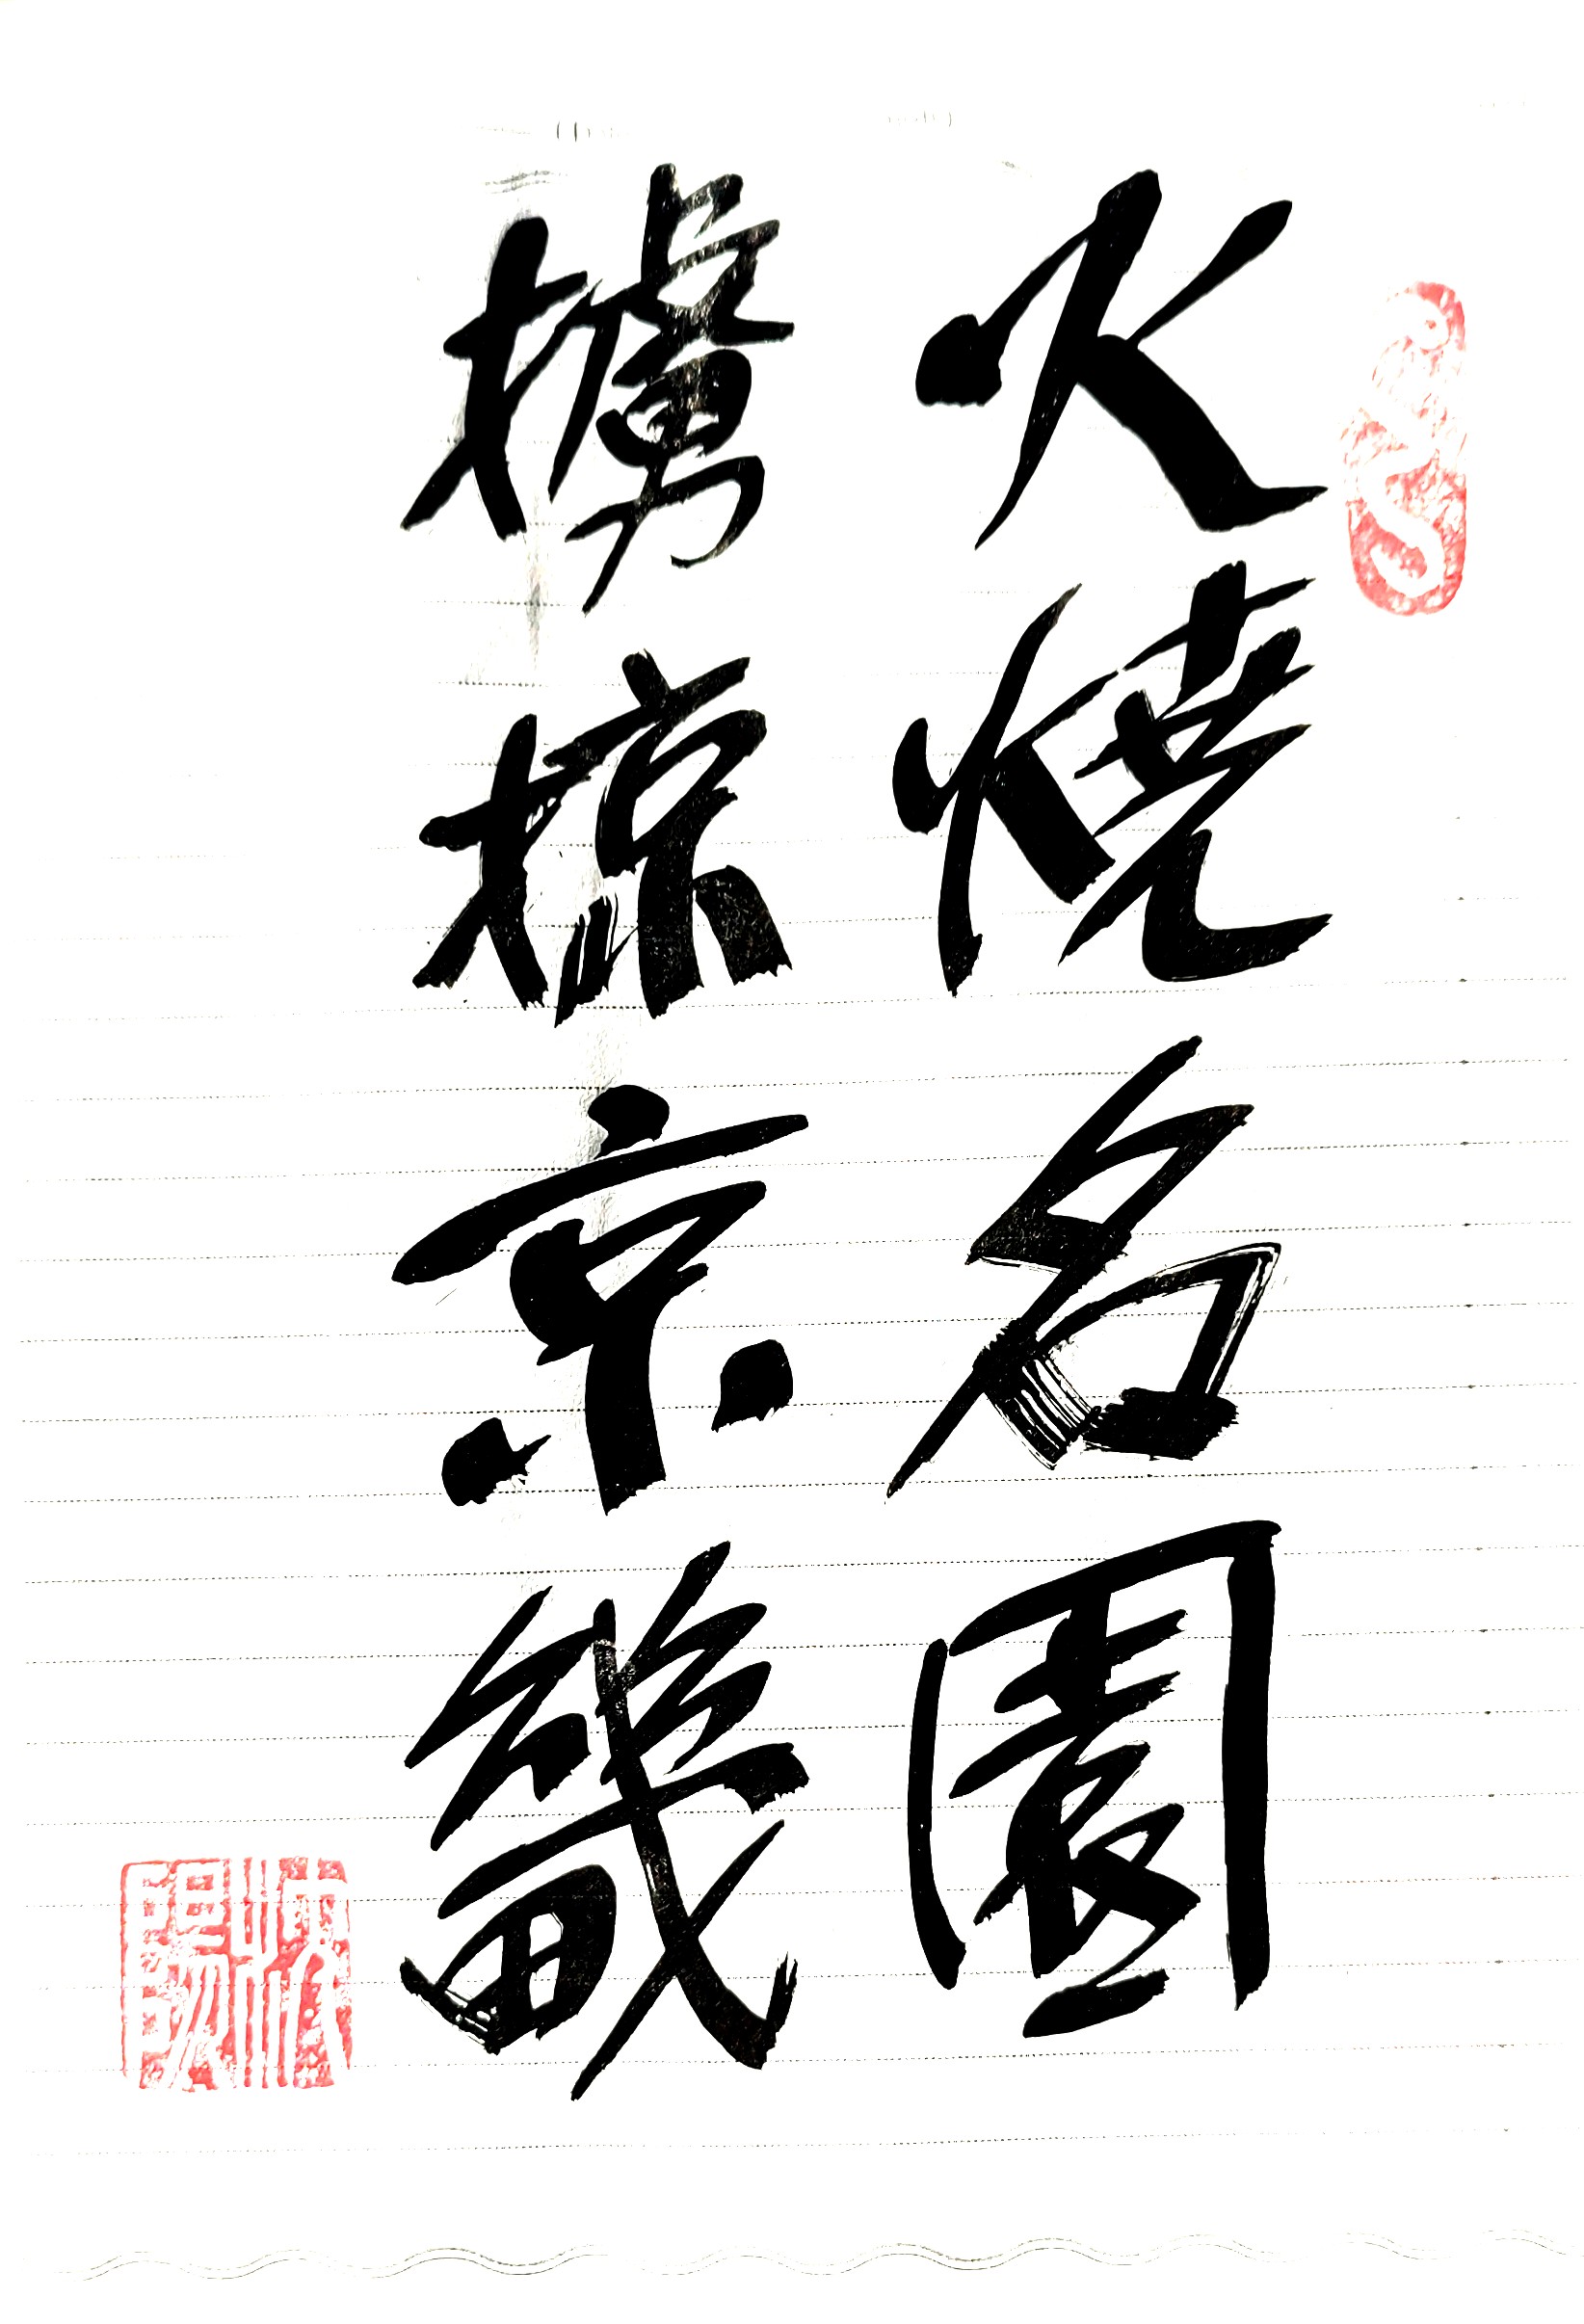 火燒名園
擄掠京畿